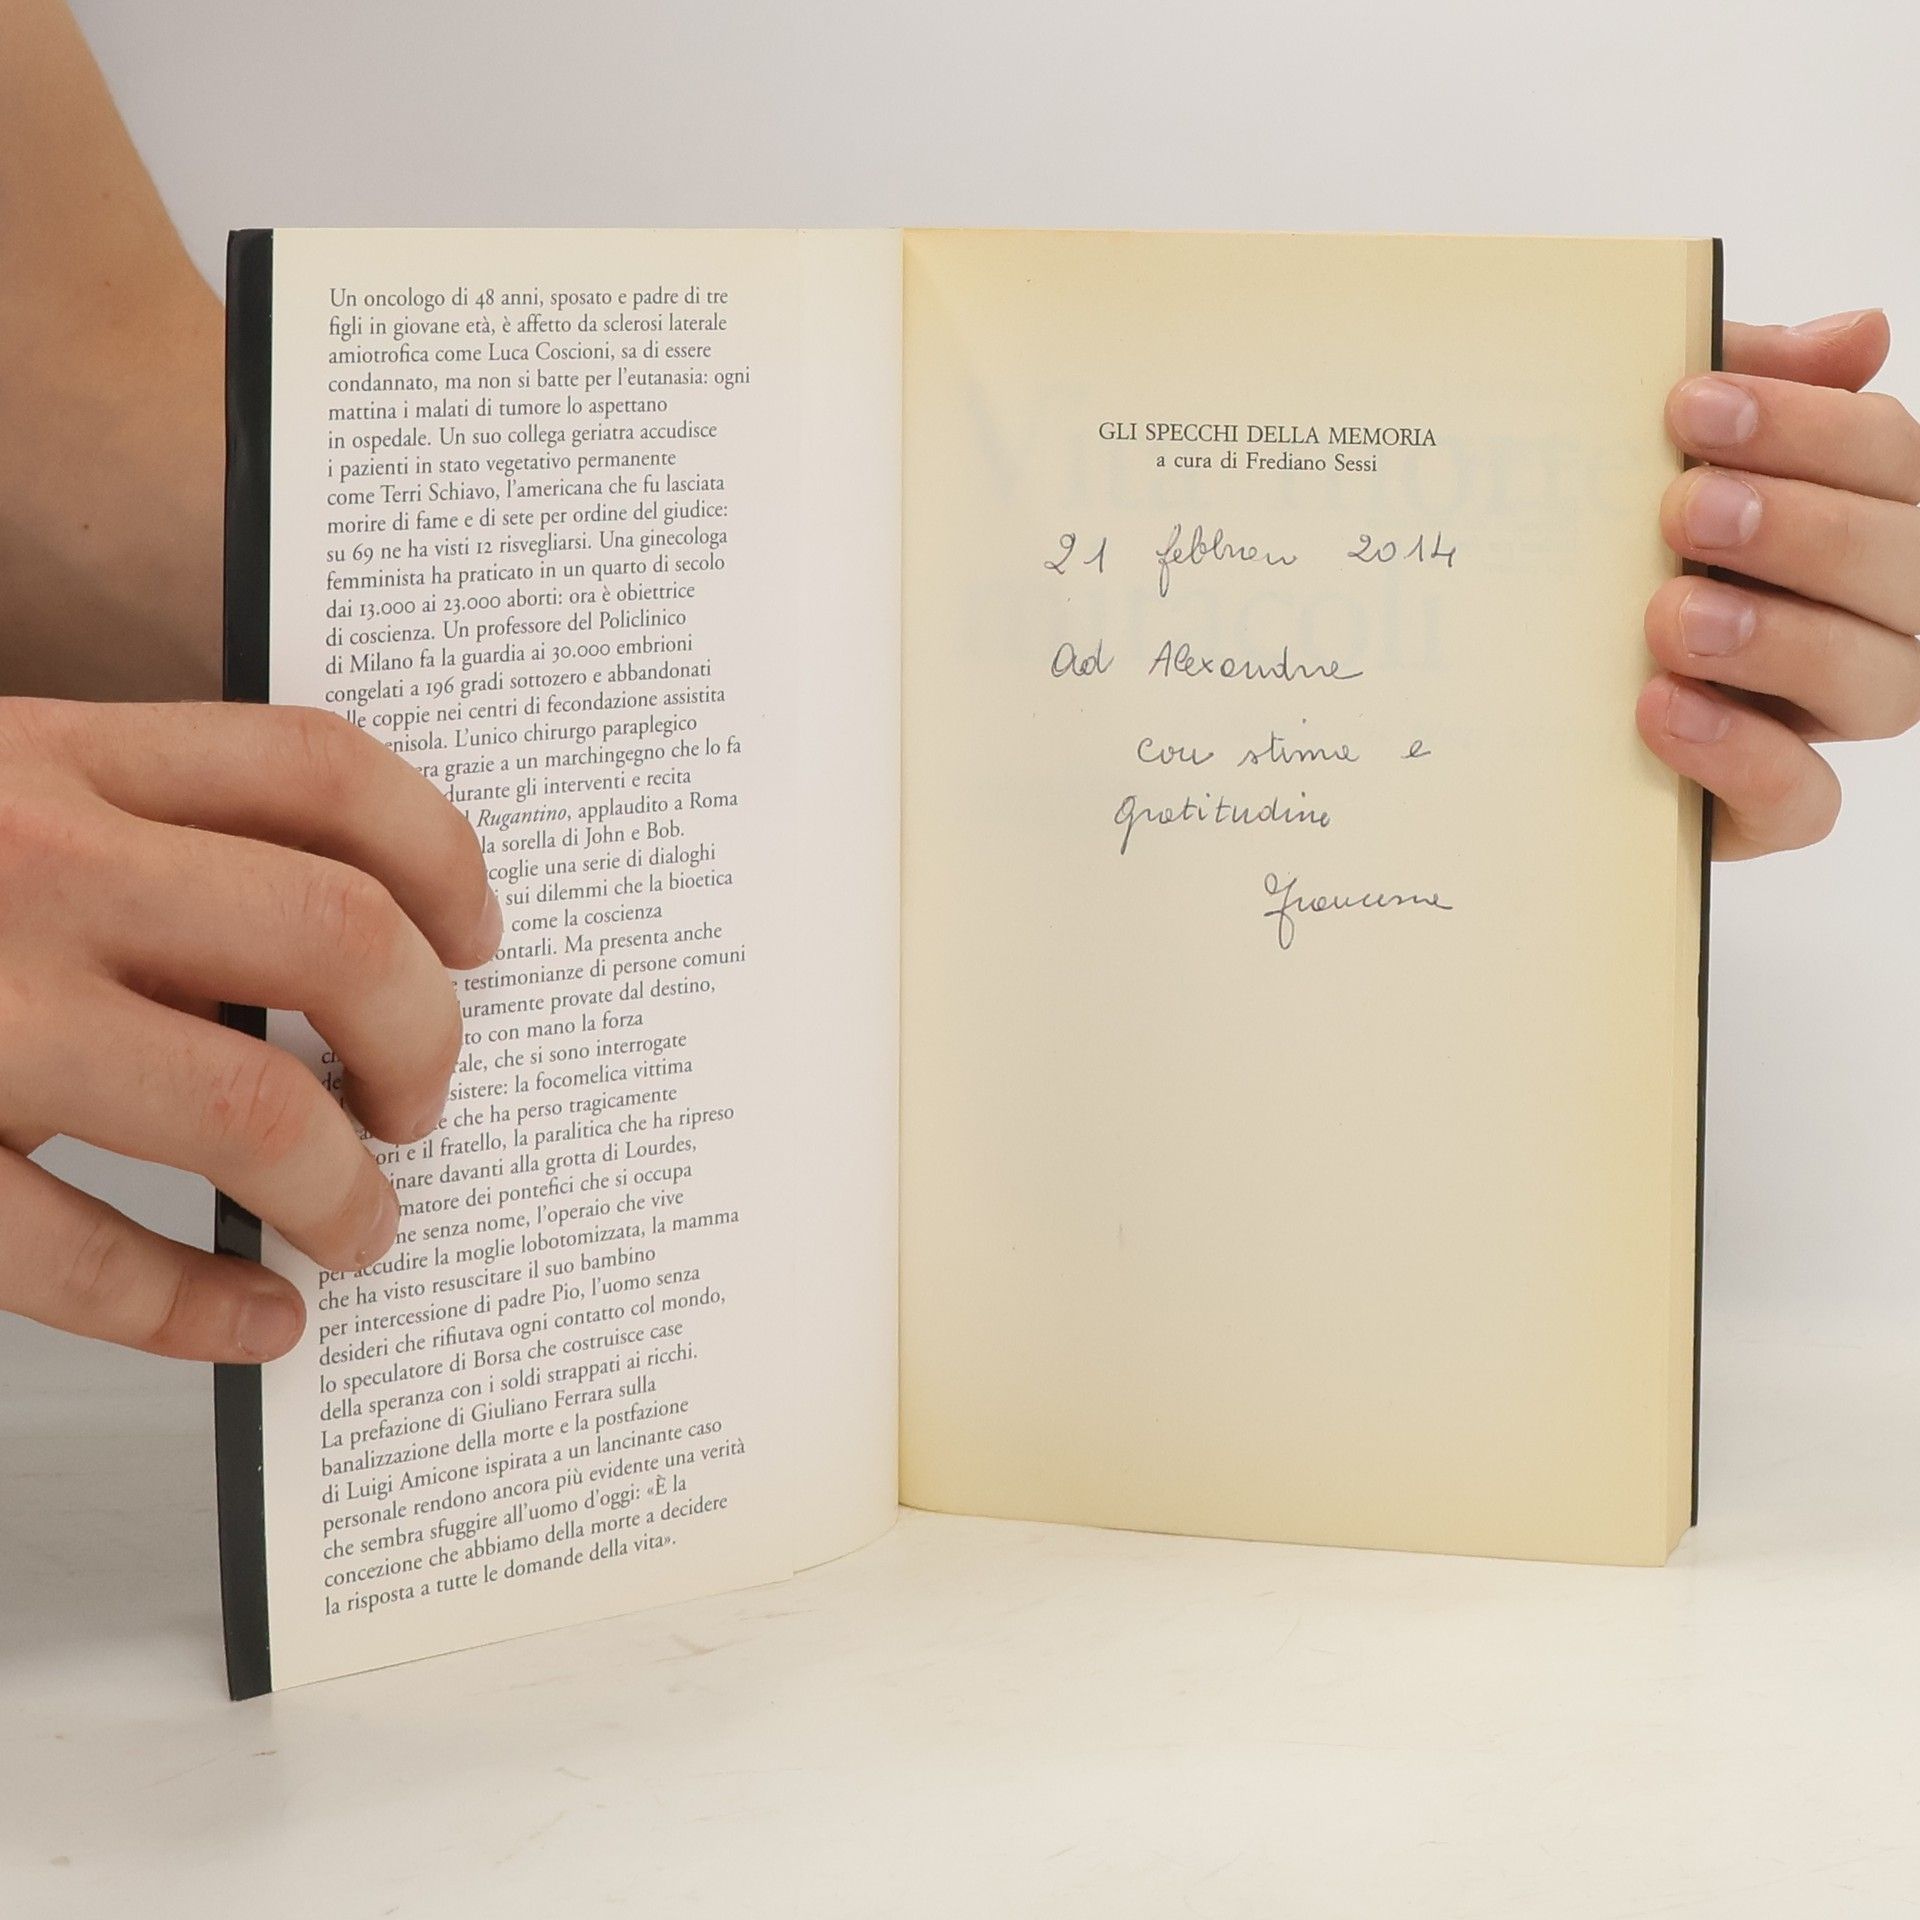 Un oncologo di 48 anni, sposato e padre di tre
figli in giovane età, è affetto da sclerosi laterale
amiotrofica come Luca Coscioni, sa di essere
condannato, ma non si batte per l'eutanasia: ogni
mattina i malati di tumore lo aspettano
in ospedale. Un suo collega geriatra accudisce
i pazienti in stato vegetativo permanente
come Terri Schiavo, l'americana che fu lasciata
morire di fame e di sete per ordine del giudice:
su 69 ne ha visti 12 risvegliarsi. Una ginecologa
femminista ha praticato in un quarto di secolo
dai 13.000 ai 23.000 aborti: ora è obiettrice
di coscienza. Un professore del Policlinico
di Milano fa la guardia ai 30.000 embrioni
congelati a 196 gradi sottozero e abbandonati
coppie nei centri di fecondazione assistita
L'unico chirurgo paraplegico
grazie a un marchingegno che lo fa
durante gli interventi e recita
Rugantino, applaudito a Roma
la sorella di John e Bob.
una serie di dialoghi
sui dilemmi che la bioetica
come la coscienza
Ma presenta anche
testimonianze di persone comuni
provate dal destino,
con mano la forza
che si sono interrogate
la focomelica vittima
che ha perso tragicamente
e il fratello, la paralitica che ha ripreso
davanti alla grotta di Lourdes,
dei pontefici che si occupa
senza nome, l'operaio che vive
per accudire la moglie lobotomizzata, la mamma
che ha visto resuscitare il suo bambino
per intercessione di padre Pio, l'uomo senza
desideri che rifiutava ogni contatto col mondo,
lo speculatore di Borsa che costruisce case
della speranza con i soldi strappati ai ricchi.
La prefazione di Giuliano Ferrara sulla
banalizzazione della morte e la postfazione
di Luigi Amicone ispirata a un lancinante caso
personale rendono ancora più evidente una verità
che sembra sfuggire all'uomo d'oggi: «È la
concezione che abbiamo della morte a decidere
la risposta a tutte le domande della vita».
GLI SPECCHI DELLA MEMORIA
a cura di Frediano Sessi
21 2014
Ad
con stima e
gratitudine